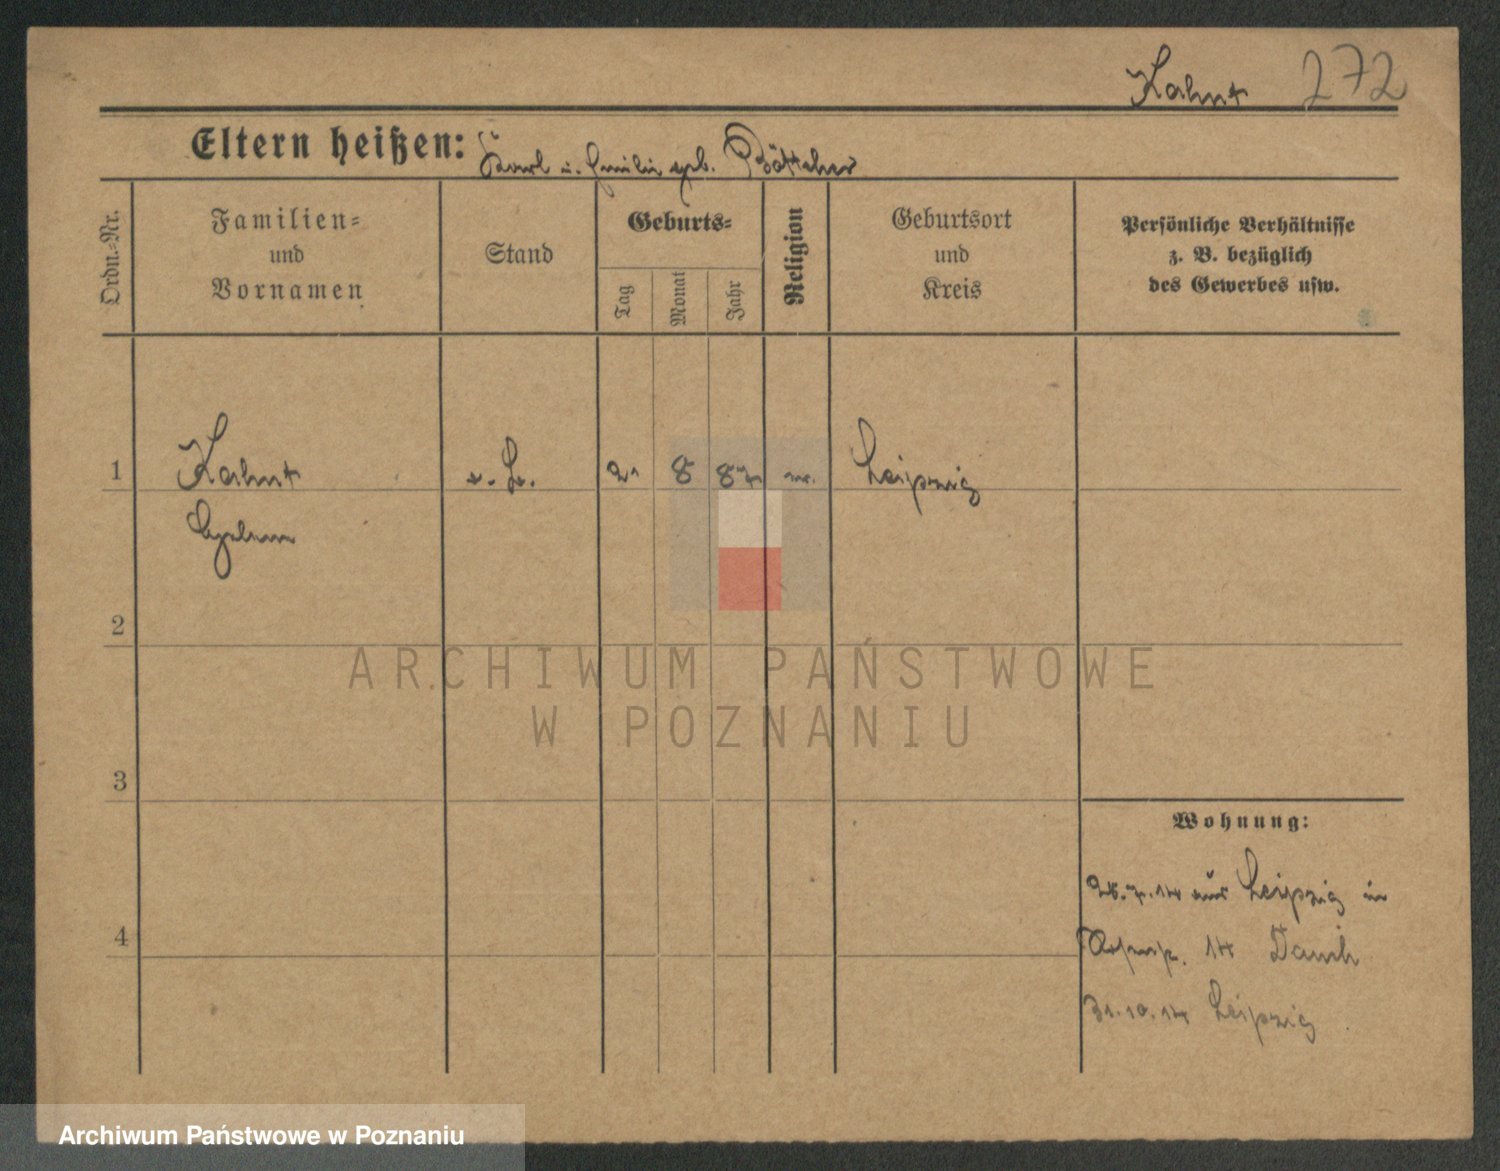 Kahnt 272
Eltern heißen: Karl u. Emilie geb. Böttcher
Ordn.-Nr.
Familien-
und
Vornamen
Stand
Geburts-
Tag
Monat
Jahr
Religion
Geburtsort
und
Kreis
Persönliche Verhältnisse
z. B. bezüglich
des Gewerbes usw.
1 Kahnt 8 Leipzig
2
3
4
Wohnung:
aus Leipzig in
14 Daub
31.10.14 Leipzig
ARCHIWUM PAŃSTWOWE
W POZNANIU
Archiwum Państwowe w Poznaniu